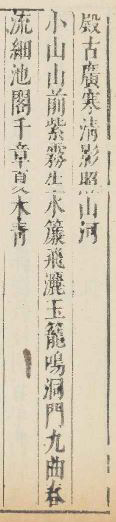 殿古廣寒清影照山河
小山山前紫霧生水簾飛灑玉籠鳴洞門九曲春
流細池閣千章夏木青